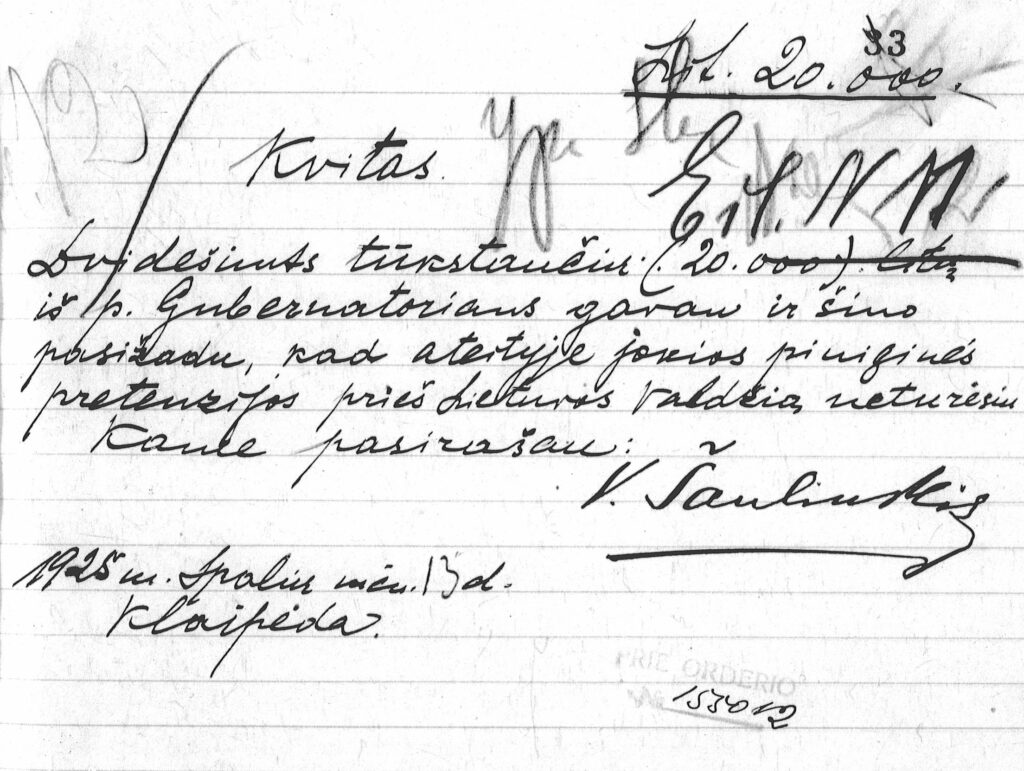 33
Lit. 20.000.
Kvitas.
Dvidešimts tūkstančių (20.000) litų
iš p. Gubernatoriaus gavau ir šiuo
pasižadu, kad ateityje jokios piniginės
pretenzijos prieš Lietuvos valdžią neturėsiu
Kame pasirašau:
V. Šaulinskis
1925 m. Spalių mėn. 13 d.
Klaipėda.
PRIE ORDERIO
№ 155012